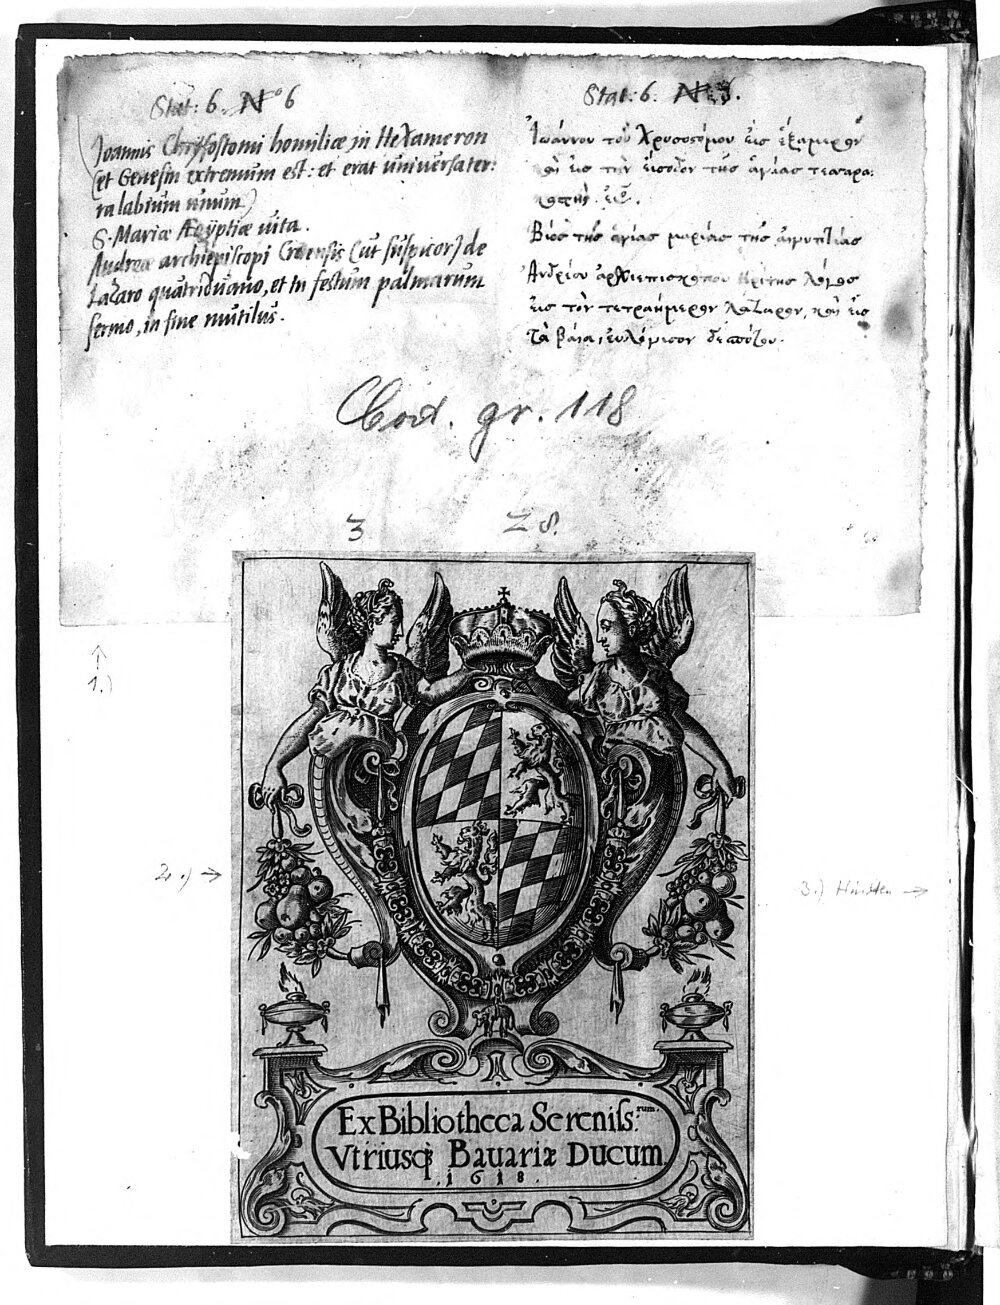 Stat: 6. N° 6
Joannis Chrysostomi homiliæ in Hexameron
(et Genesin extremum est: et erat universa ter:
ra labium unum)
S. Mariæ Ægÿptiæ vita.
Andreæ archiepiscopi Cretensis (ut suspicor) de
Lazaro quatriduano, et in festum palmarum
sermo, in fine mutilus.
Stat: 6. N°
Ἰωάννου τοῦ Χρυσοστόμου εἰς ἑξαήμερον
καὶ εἰς τὴν εἴσοδον τῆς ἁγίας τεσσαρα:
κοστῆς.
Βίος τῆς ἁγίας μαρίας τῆς αἰγυπτίας
Ἀνδρέου ἀρχιεπισκόπου Κρίτης λόγος
εἰς τὸν τετραήμερον Λάζαρον, καὶ εἰς
τὰ βάϊα, εὐλόγησον δέσποτα.
Cod. gr. 118
3 Z 8.
1.)
2.) →
3.) Hinten →
Ex Bibliotheca Sereniss:rum.
Vtriusq; Bauariæ Ducum
.1618.